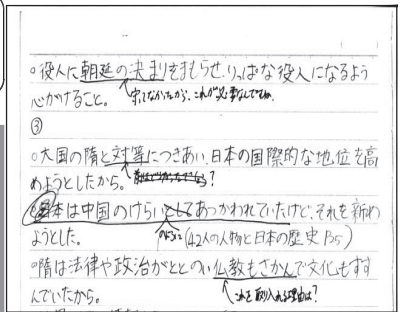 ○役人に朝廷の決まりをまもらせ、りっぱな役人になるよう
心がけること。
③
○大国の隋と対等につきあい、日本の国際的な地位を高
めようとしたから。
?
日本は中国のけらいとしてあつかわれていたけど、それを断わ
ろうとした。
のように
(42人の人物と日本の歴史P35)
○隋は法律や政治がととのい仏教もさかんで文化もすす
んでいたから。
これを取り入れる理由は?